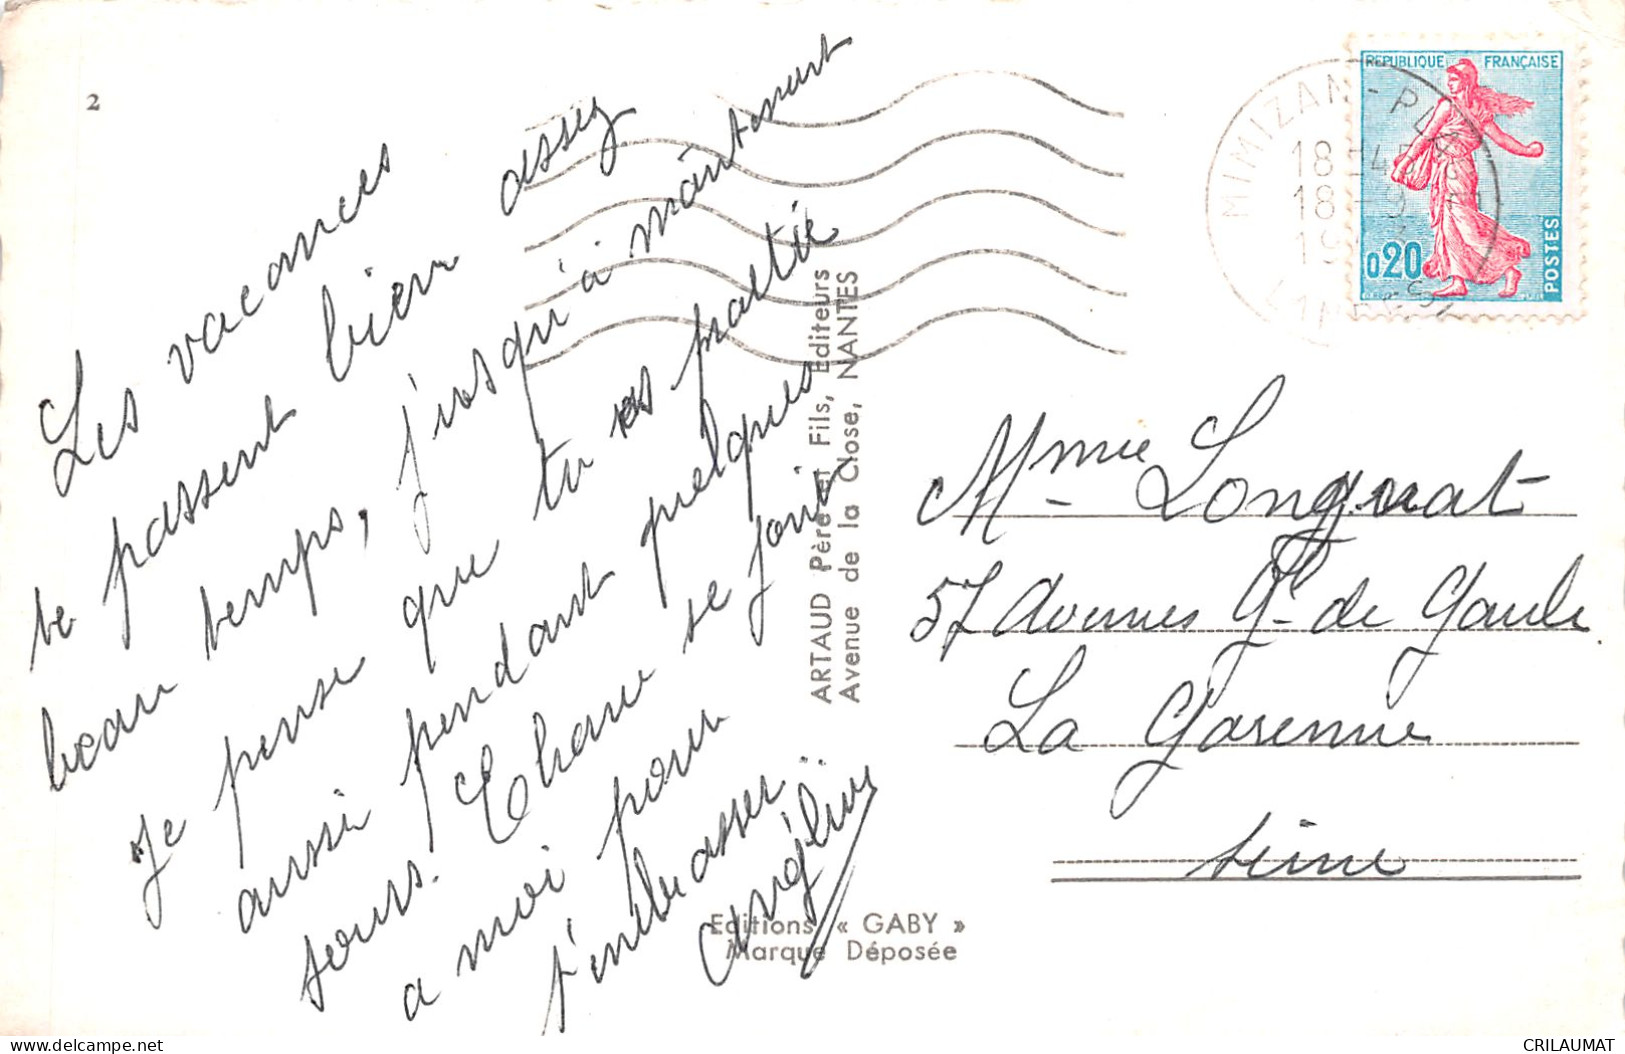 2
Les vacances
se passent bien assez
beau temps, jusqu'à maintenant
Je pense que tu es partie
aussi pendant quelques
jours. Etienne se joint
a moi pour
t'embrasser..
Angéline
ARTAUD Père et Fils, Editeurs
Avenue de la Close, NANTES
Editions « GABY »
Marque Déposée
MIMIZAN-PLAGE
18
18 - 9
REPUBLIQUE FRANÇAISE
0,20
POSTES
Mme Longuat
57 Avenues Gl de Gaule
La Garenne
Seine
CRILAUMAT